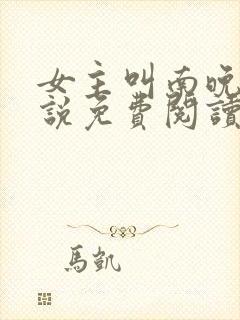 女主叫南晚
說免費閱讀
馬凱